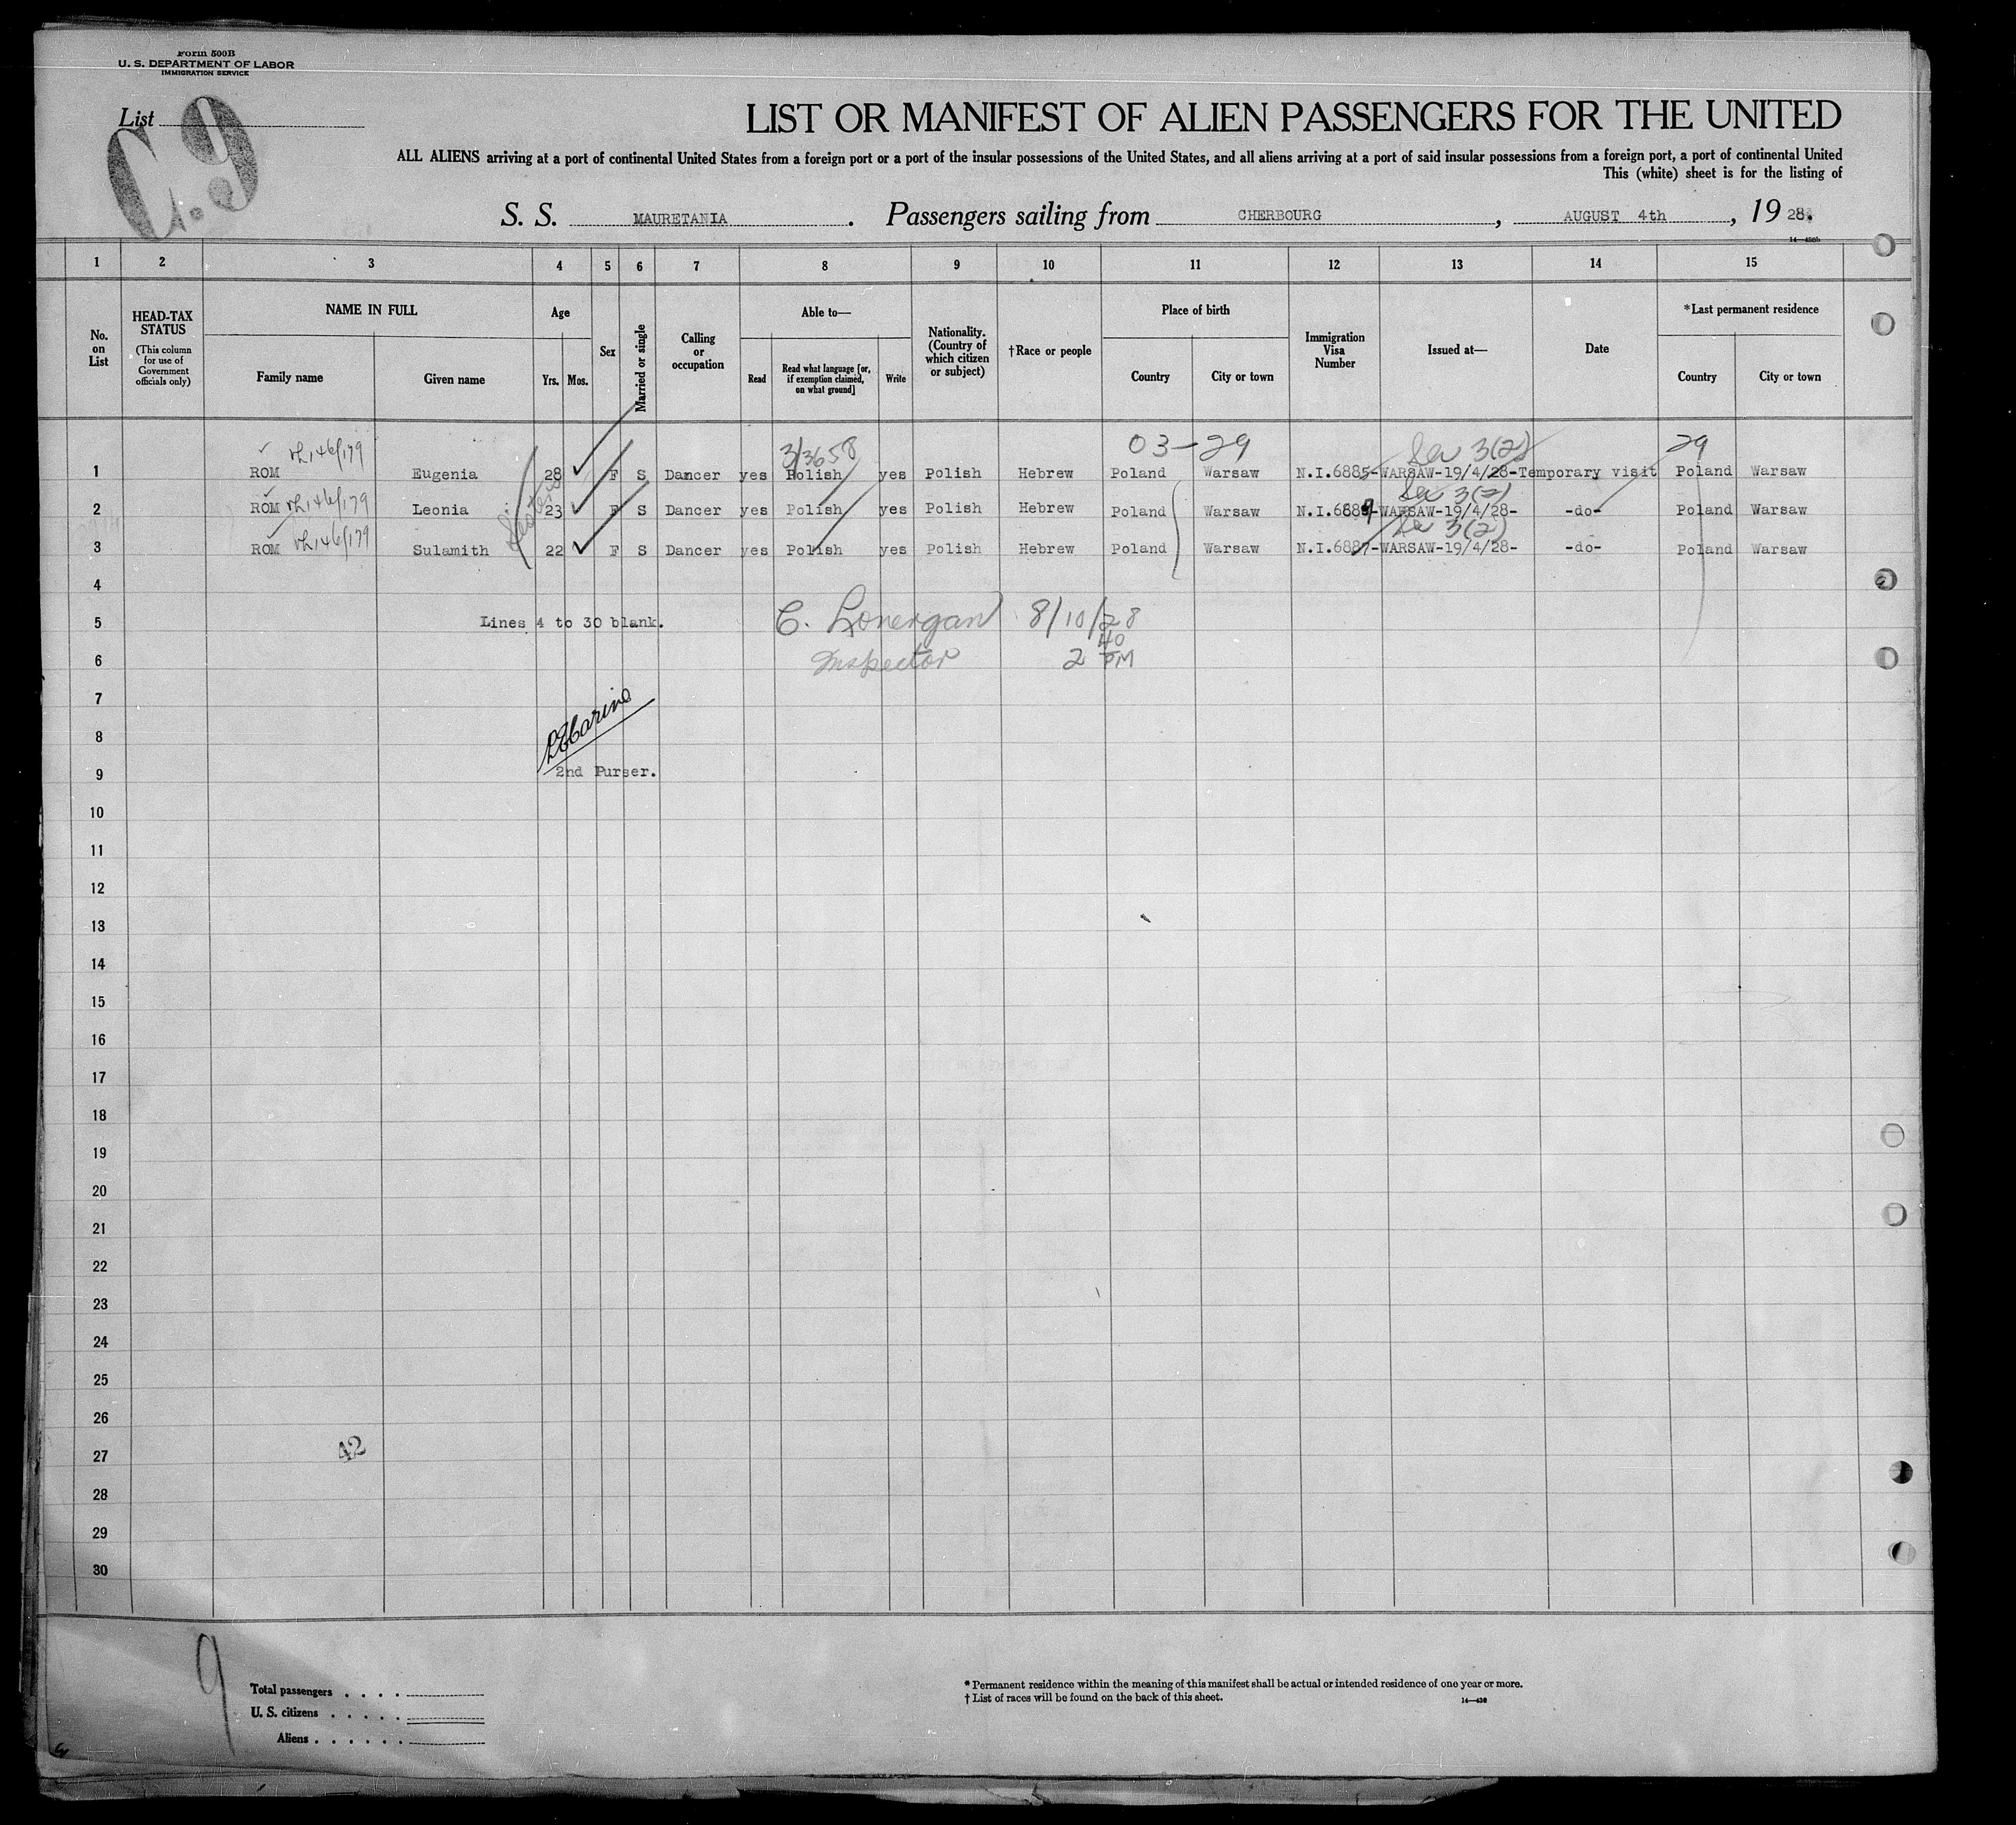 Form 500B
U. S. DEPARTMENT OF LABOR
IMMIGRATION SERVICE
List
C.9
LIST OR MANIFEST OF ALIEN PASSENGERS FOR THE UNITED
ALL ALIENS arriving at a port of continental United States from a foreign port or a port of the insular possessions of the United States, and all aliens arriving at a port of said insular possessions from a foreign port, a port of continental United
This (white) sheet is for the listing of
S. S. MAURETANIA. Passengers sailing from CHERBOURG, AUGUST 4th, 1928.
14—480b
1 2 3 4 5 6 7 8 9 10 11 12 13 14 15
No. on List
HEAD-TAX STATUS
(This column for use of Government officials only)
NAME IN FULL
Family name Given name
Age
Yrs. Mos.
Sex
Married or single
Calling or occupation
Able to—
Read
Read what language [or, if exemption claimed, on what ground]
Write
Nationality. (Country of which citizen or subject)
†Race or people
Place of birth
Country City or town
Immigration Visa Number
Issued at—
Date
*Last permanent residence
Country City or town
3/3658 03-29 Sec 3(2) 29
1 ROM Eugenia 28 F S Dancer yes Polish yes Polish Hebrew Poland Warsaw N.I.6885-WARSAW-19/4/28-Temporary visit Poland Warsaw
Sisters
Sec 3(2)
2 ROM Leonia 23 F S Dancer yes Polish yes Polish Hebrew Poland Warsaw N.I.6889-WARSAW-19/4/28- -do- Poland Warsaw
Sec 3(2)
3 ROM Sulamith 22 F S Dancer yes Polish yes Polish Hebrew Poland Warsaw N.I.6887-WARSAW-19/4/28- -do- Poland Warsaw
4
5 Lines 4 to 30 blank. C. Lonergan 8/10/28
6 Inspector 2 40 PM
7
8
9 2nd Purser.
10
11
12
13
14
15
16
17
18
19
20
21
22
23
24
25
26
27 42
28
29
30
9
Total passengers . . . .
U. S. citizens . . . . .
Aliens . . . . . .
* Permanent residence within the meaning of this manifest shall be actual or intended residence of one year or more.
† List of races will be found on the back of this sheet.